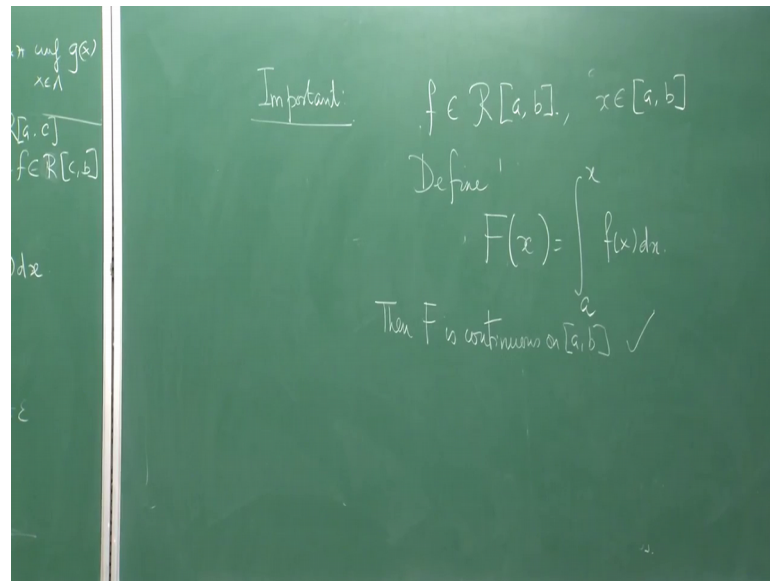 inf g(x)
x∈A
R[a,c]
f∈R[c,b]
)dx
ε
Important:
f ∈ R[a,b], x∈[a,b]
Define
F(x) = ∫_a^x f(x)dx.
Then F is continuous on [a,b] ✓